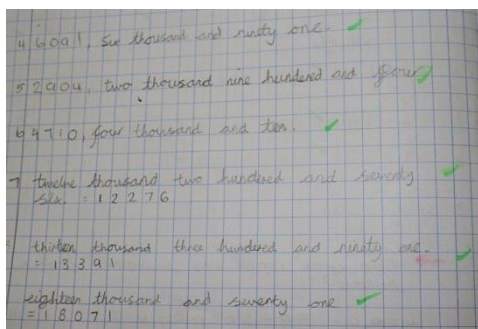 4 6091, six thousand and ninety one.
5 2904, two thousand nine hundered and four
6 4710, four thousand and ten.
7 twelve thousand two hundered and seventy
six. = 12276
thirteen thousand three hundered and ninety one.
= 13391
eighteen thousand and seventy one
= 18071